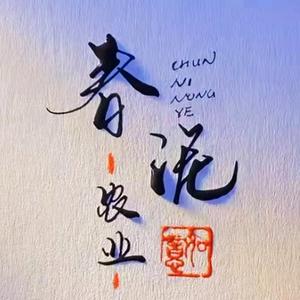 春泥
CHUN
NI
NONG
YE
农业
如意